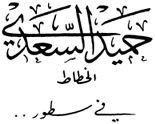 حميد السعدي
الخطاط
في سطور ..